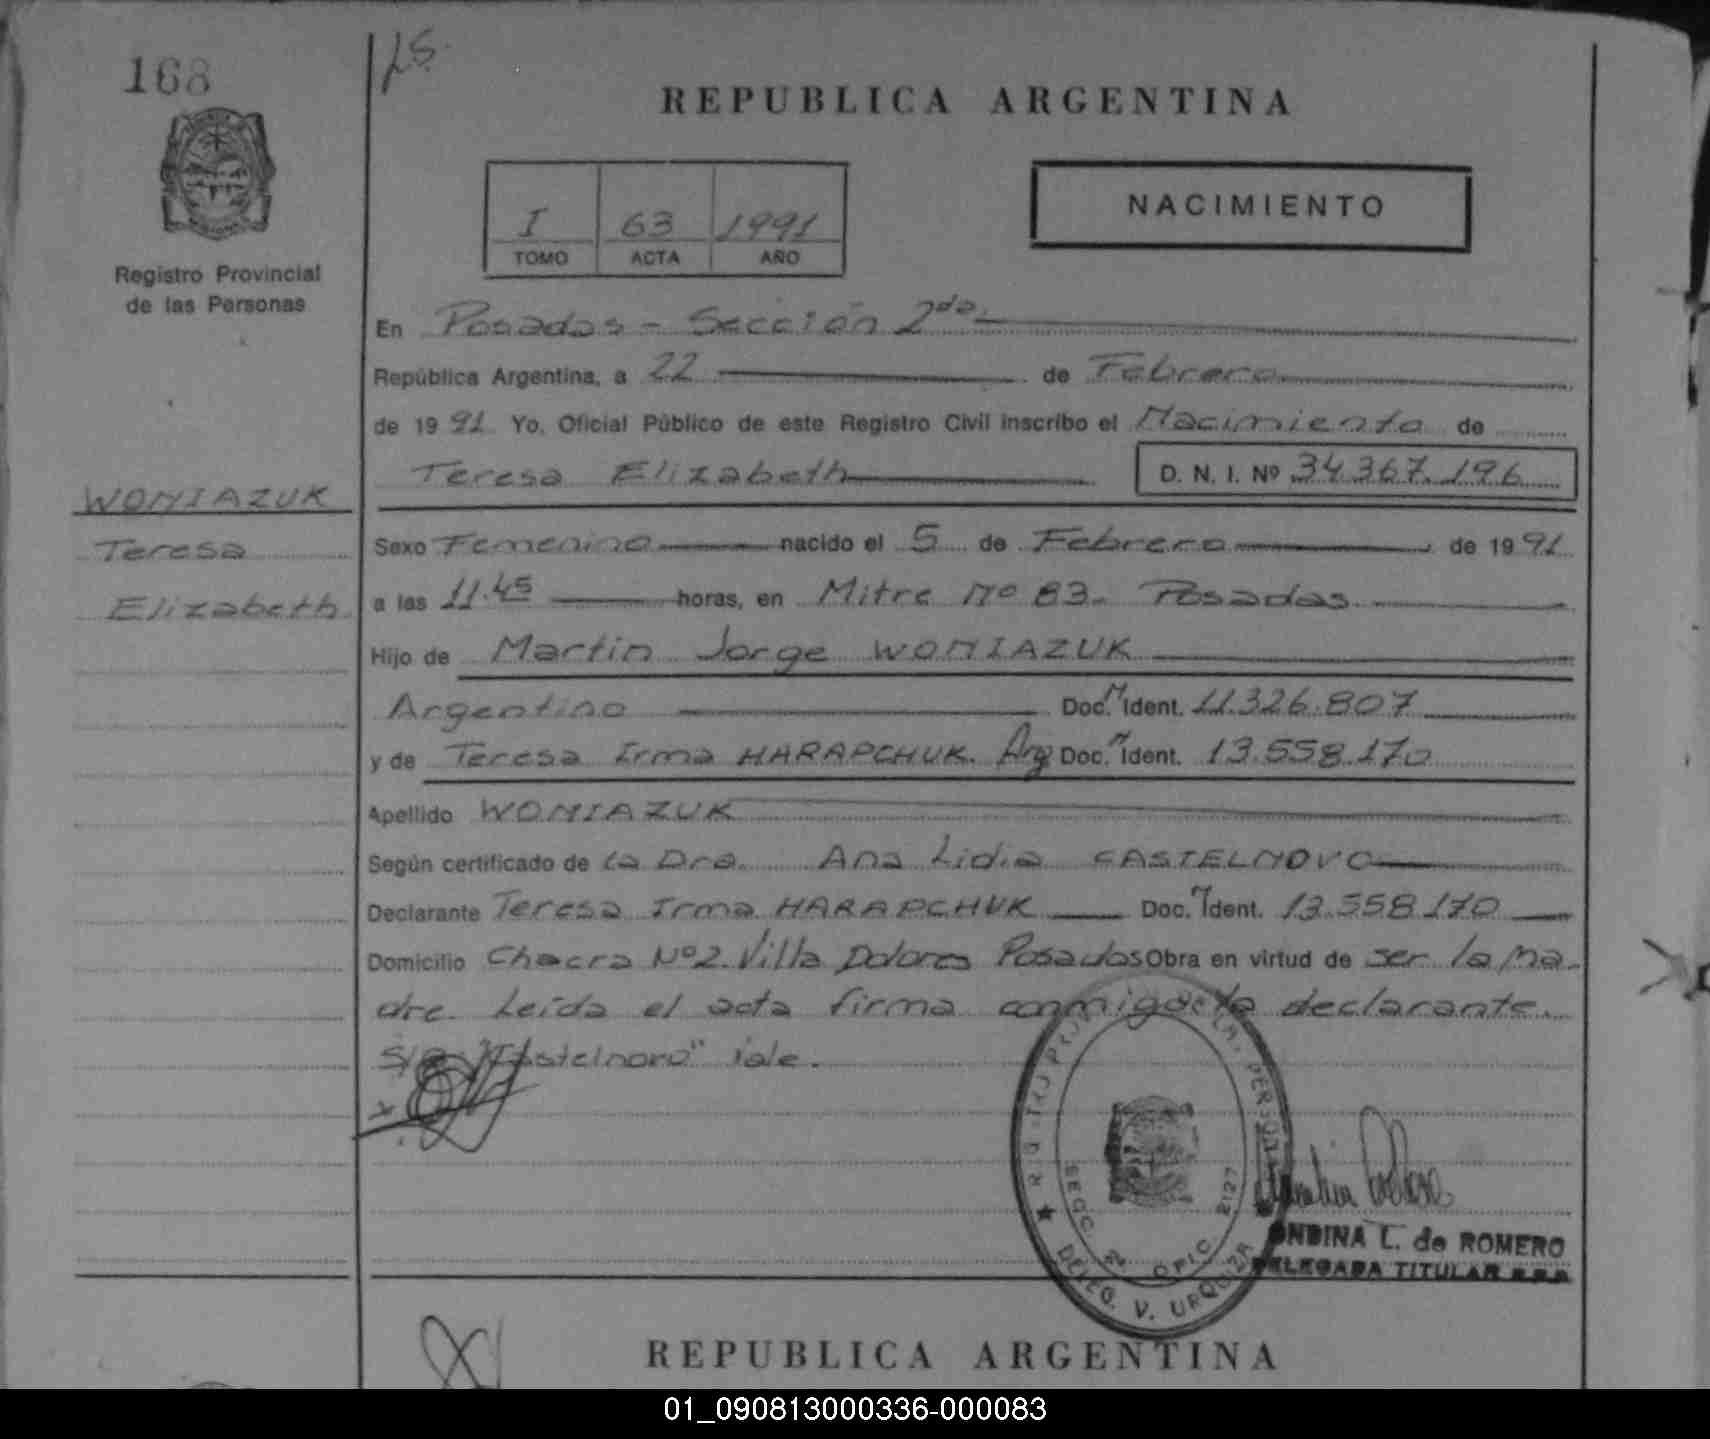 168
REPUBLICA ARGENTINA
I 63 1991
TOMO ACTA AÑO
NACIMIENTO
Registro Provincial
de las Personas
En Posadas - Sección 2da.
República Argentina, a 22 de Febrero
de 1991 Yo, Oficial Público de este Registro Civil inscribo el Nacimiento de
Teresa Elizabeth D. N. I. Nº 34.367.196
WONIAZUK
Teresa
Elizabeth
Sexo Femenino nacido el 5 de Febrero de 1991
a las 11.45 horas, en Mitre Nº 83. Posadas
Hijo de Martin Jorge WONIAZUK
Argentino Doc. N Ident. 11.326.807
y de Teresa Irma HARAPCHUK. Arg Doc. N Ident. 13.558.170
Apellido WONIAZUK
Según certificado de la Dra. Ana Lidia CASTELNOVO
Declarante Teresa Irma HARAPCHUK Doc. N Ident. 13.558.170
Domicilio Chacra Nº2. Villa Dolores Posadas Obra en virtud de ser la Ma-
dre. Leída el acta firma conmigo la declarante.
"Castelnovo" vale.
SECC. 2ª OFIC. 2127
DELEG. V. URQUIZA
ONDINA L. de ROMERO
DELEGADA TITULAR R.P.P.
REPUBLICA ARGENTINA
01_090813000336-000083